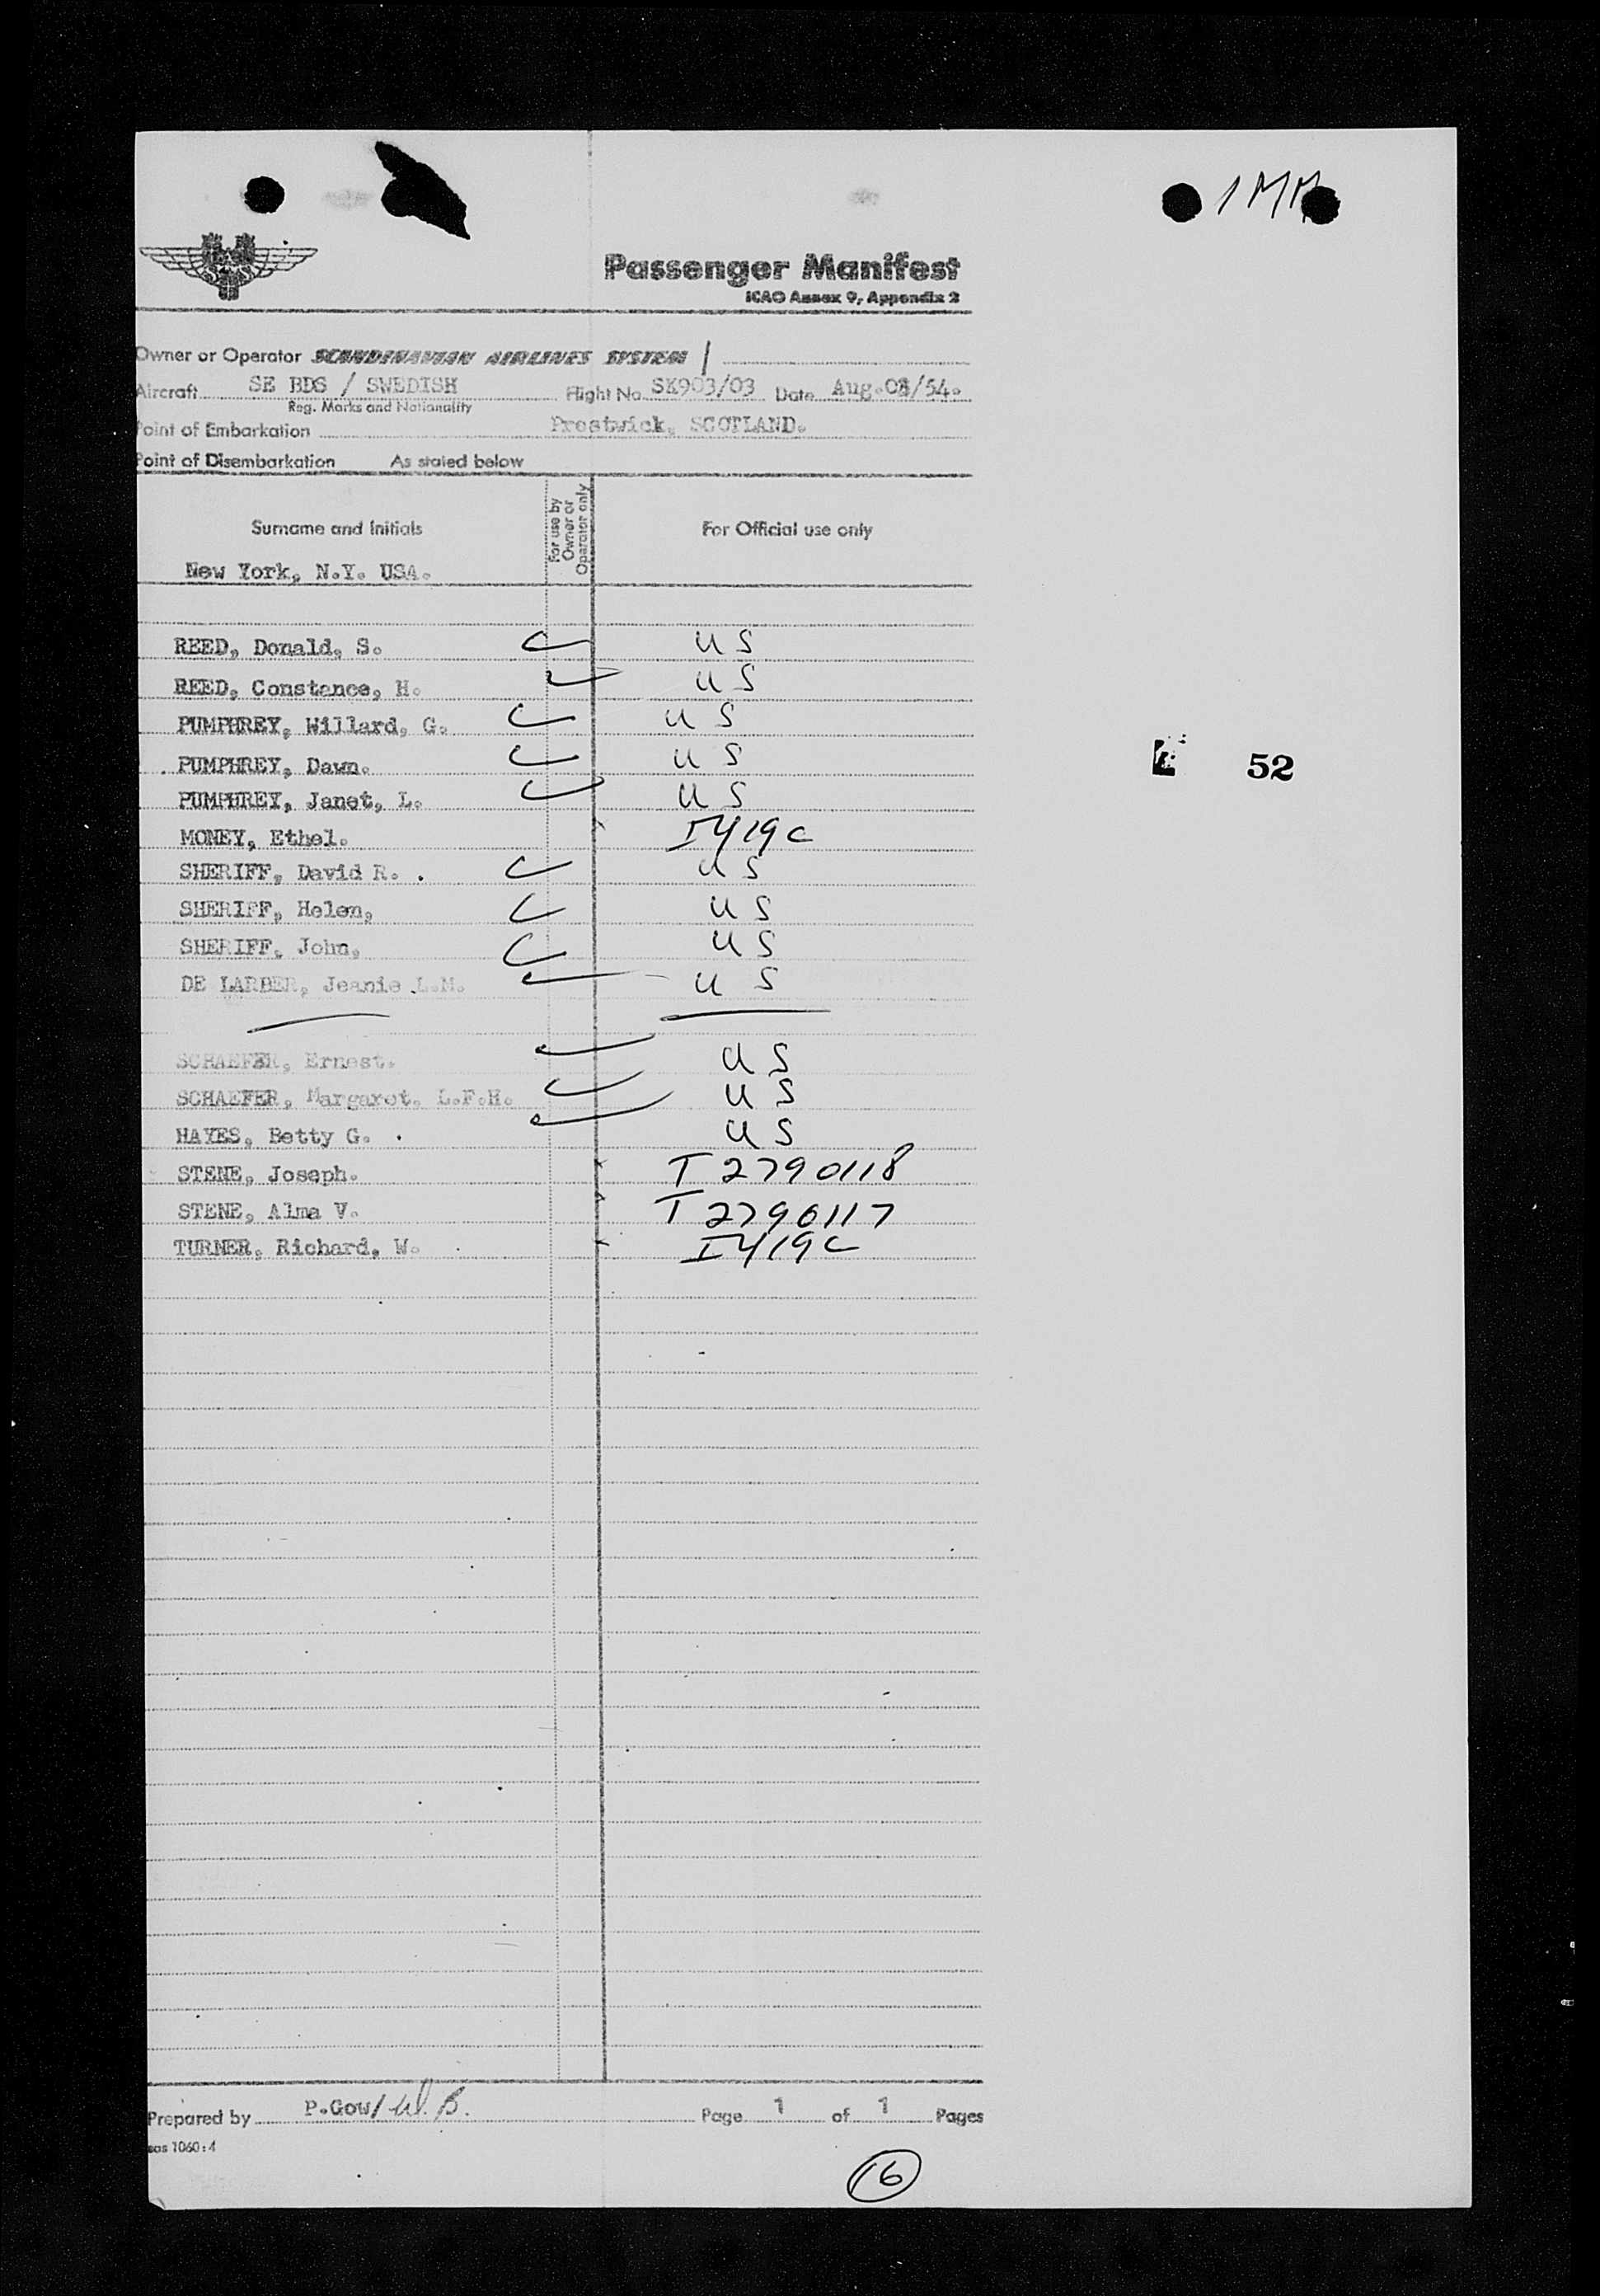 1MM
SAS
Passenger Manifest
ICAO Annex 9, Appendix 2
Owner or Operator SCANDINAVIAN AIRLINES SYSTEM /
Aircraft SE BDS / SWEDISH Flight No. SK903/03 Date Aug.03/54.
Reg. Marks and Nationality
Point of Embarkation Prestwick, SCOTLAND.
Point of Disembarkation As stated below
Surname and Initials For use by Owner or Operator only For Official use only
New York, N.Y. USA.
REED, Donald, S. U S
REED, Constance, H. U S
PUMPHREY, Willard, G. U S
PUMPHREY, Dawn. U S
52
PUMPHREY, Janet, L. U S
MONEY, Ethel. I419C
SHERIFF, David R. . U S
SHERIFF, Helen, U S
SHERIFF, John, U S
DE LARBER, Jeanie L.M. U S
SCHAEFER, Ernest. U S
SCHAEFER, Margaret, L.F.H. U S
HAYES, Betty G. . U S
STENE, Joseph. T 2790118
STENE, Alma V. T 2790117
TURNER, Richard, W. I419C
Prepared by P.Gow/ W.B. Page 1 of 1 Pages
sas 1060:4
16